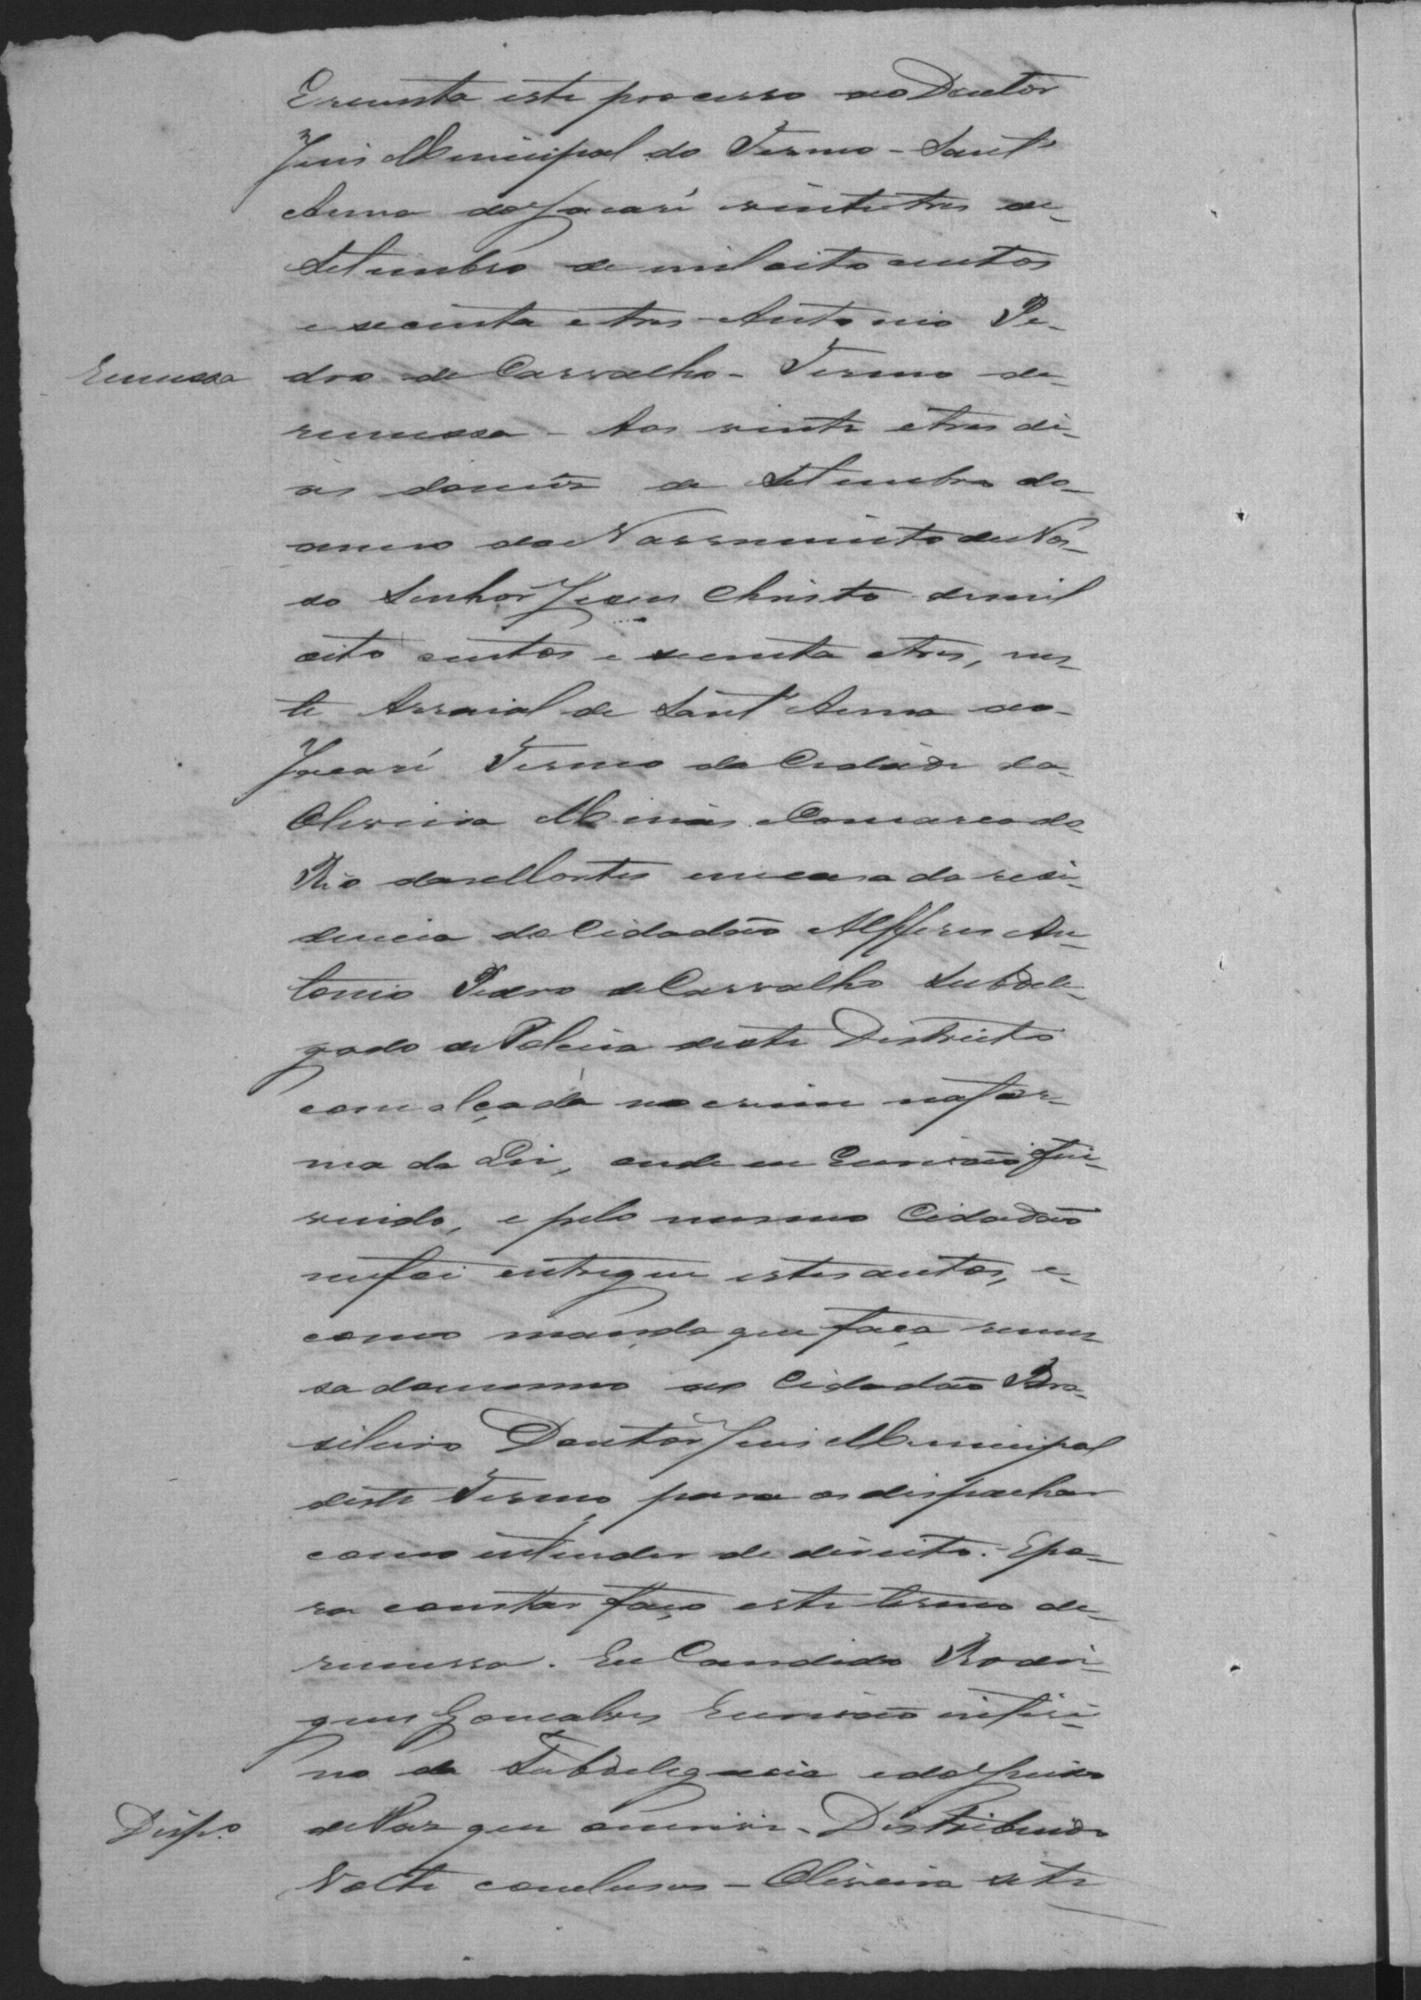 E remeta este processo ao Doutor
Juis Municipal do Termo - Sant'
Anna do Jacaré vinte tres de
Setembro de mil oito centos
e secenta e tres - Antonio Pe-
Remessa
dro de Carvalho - Termo de
remessa - Aos vinte e tres di-
as do mês de Setembro do
anno do Nassimento de Nos-
so Senhor Jesus Christo de mil
oito centos e secenta e tres, nes-
te Arraial de Sant' Anna do
Jacaré Termo da Cidade da
Oliveira Minas Comarca do
Rio das Mortes em casa da resi-
dencia do Cidadão Alfferes An-
tonio Pedro de Carvalho Subdele-
gado de Policia deste Districto
com alçada no crime na for-
ma da Lei, onde eu Escrivão fui
vindo, e pelo mesmo Cidadão
me foi entregue estes autos, e
como manda que faça remes
sa do mesmo ao Cidadão Bra-
sileiro Doutor Juis Municipal
deste Termo, para os dispachar
como intender de direito. E pa-
ra constar faço este termo de
remessa. Eu Candido Rodri-
gues Gonçalves Escrivão intiri-
no da Subdelegacia e do Juiso
Disp.o
de Paz que escrivi - Distribuido
Volte concluso - Oliveira sete